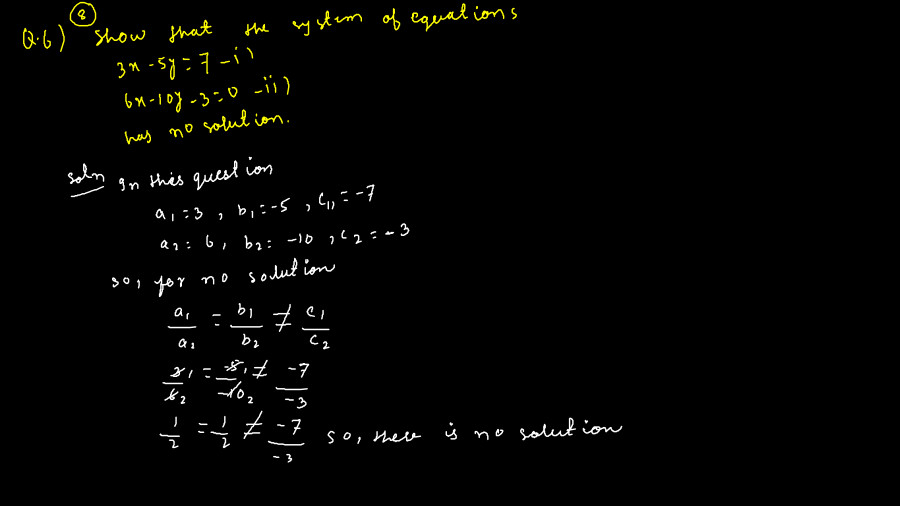 Q.6) 8 Show that the system of equations
3x - 5y = 7 - i)
6x - 10y - 3 = 0 - ii)
has no solution.
Soln In this question
a₁ = 3, b₁ = -5, c₁, = -7
a₂ = 6, b₂ = -10, c₂ = -3
so, for no solution
a₁/a₂ = b₁/b₂ ≠ c₁/c₂
3 1/6 2 = -5 1/-10 2 ≠ -7/-3
1/2 = 1/2 ≠ -7/-3 so, there is no solution